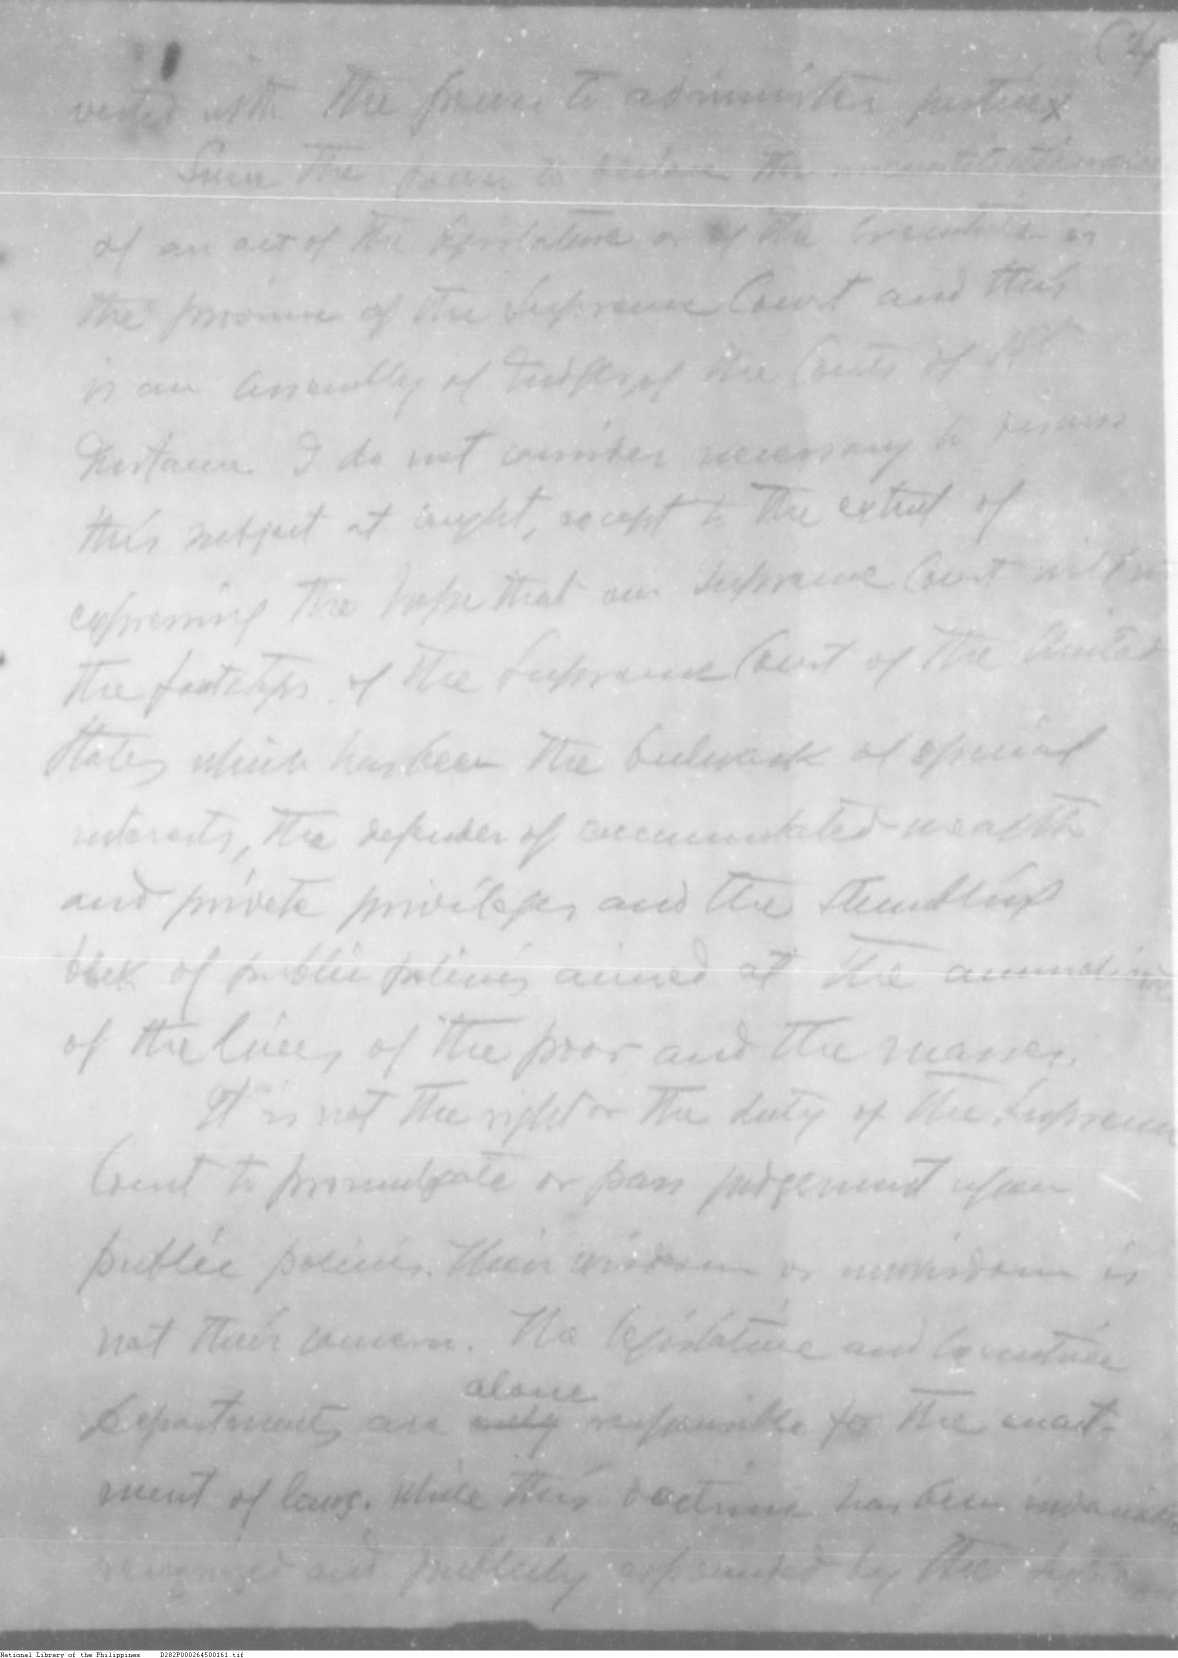 (4
vested with the power to administer justice
Since the power to declare the unconstitutionality
of an act of the legislature or of the Executive is
the province of the Supreme Court and this
is an Assembly of Judges of the Courts of 1st
Instance I do not consider necessary to discuss
this subject at length, except to the extent of
expressing the hope that our Supreme Court
the footsteps of the Supreme Court of the United
States which has been the bulwark of special
interests, the defender of accumulated wealth
and private privileges, and the stumbling
block of public policies aimed at the
of the lives of the poor and the masses.
It is not the right or the duty of the Supreme
Court to promulgate or pass judgement upon
public policies. Their wisdom or unwisdom is
not their concern. The legislative and Executive
alone
Departments are only responsible for the enact-
ment of laws. While this doctrine has been
recognized and publicly expounded by the